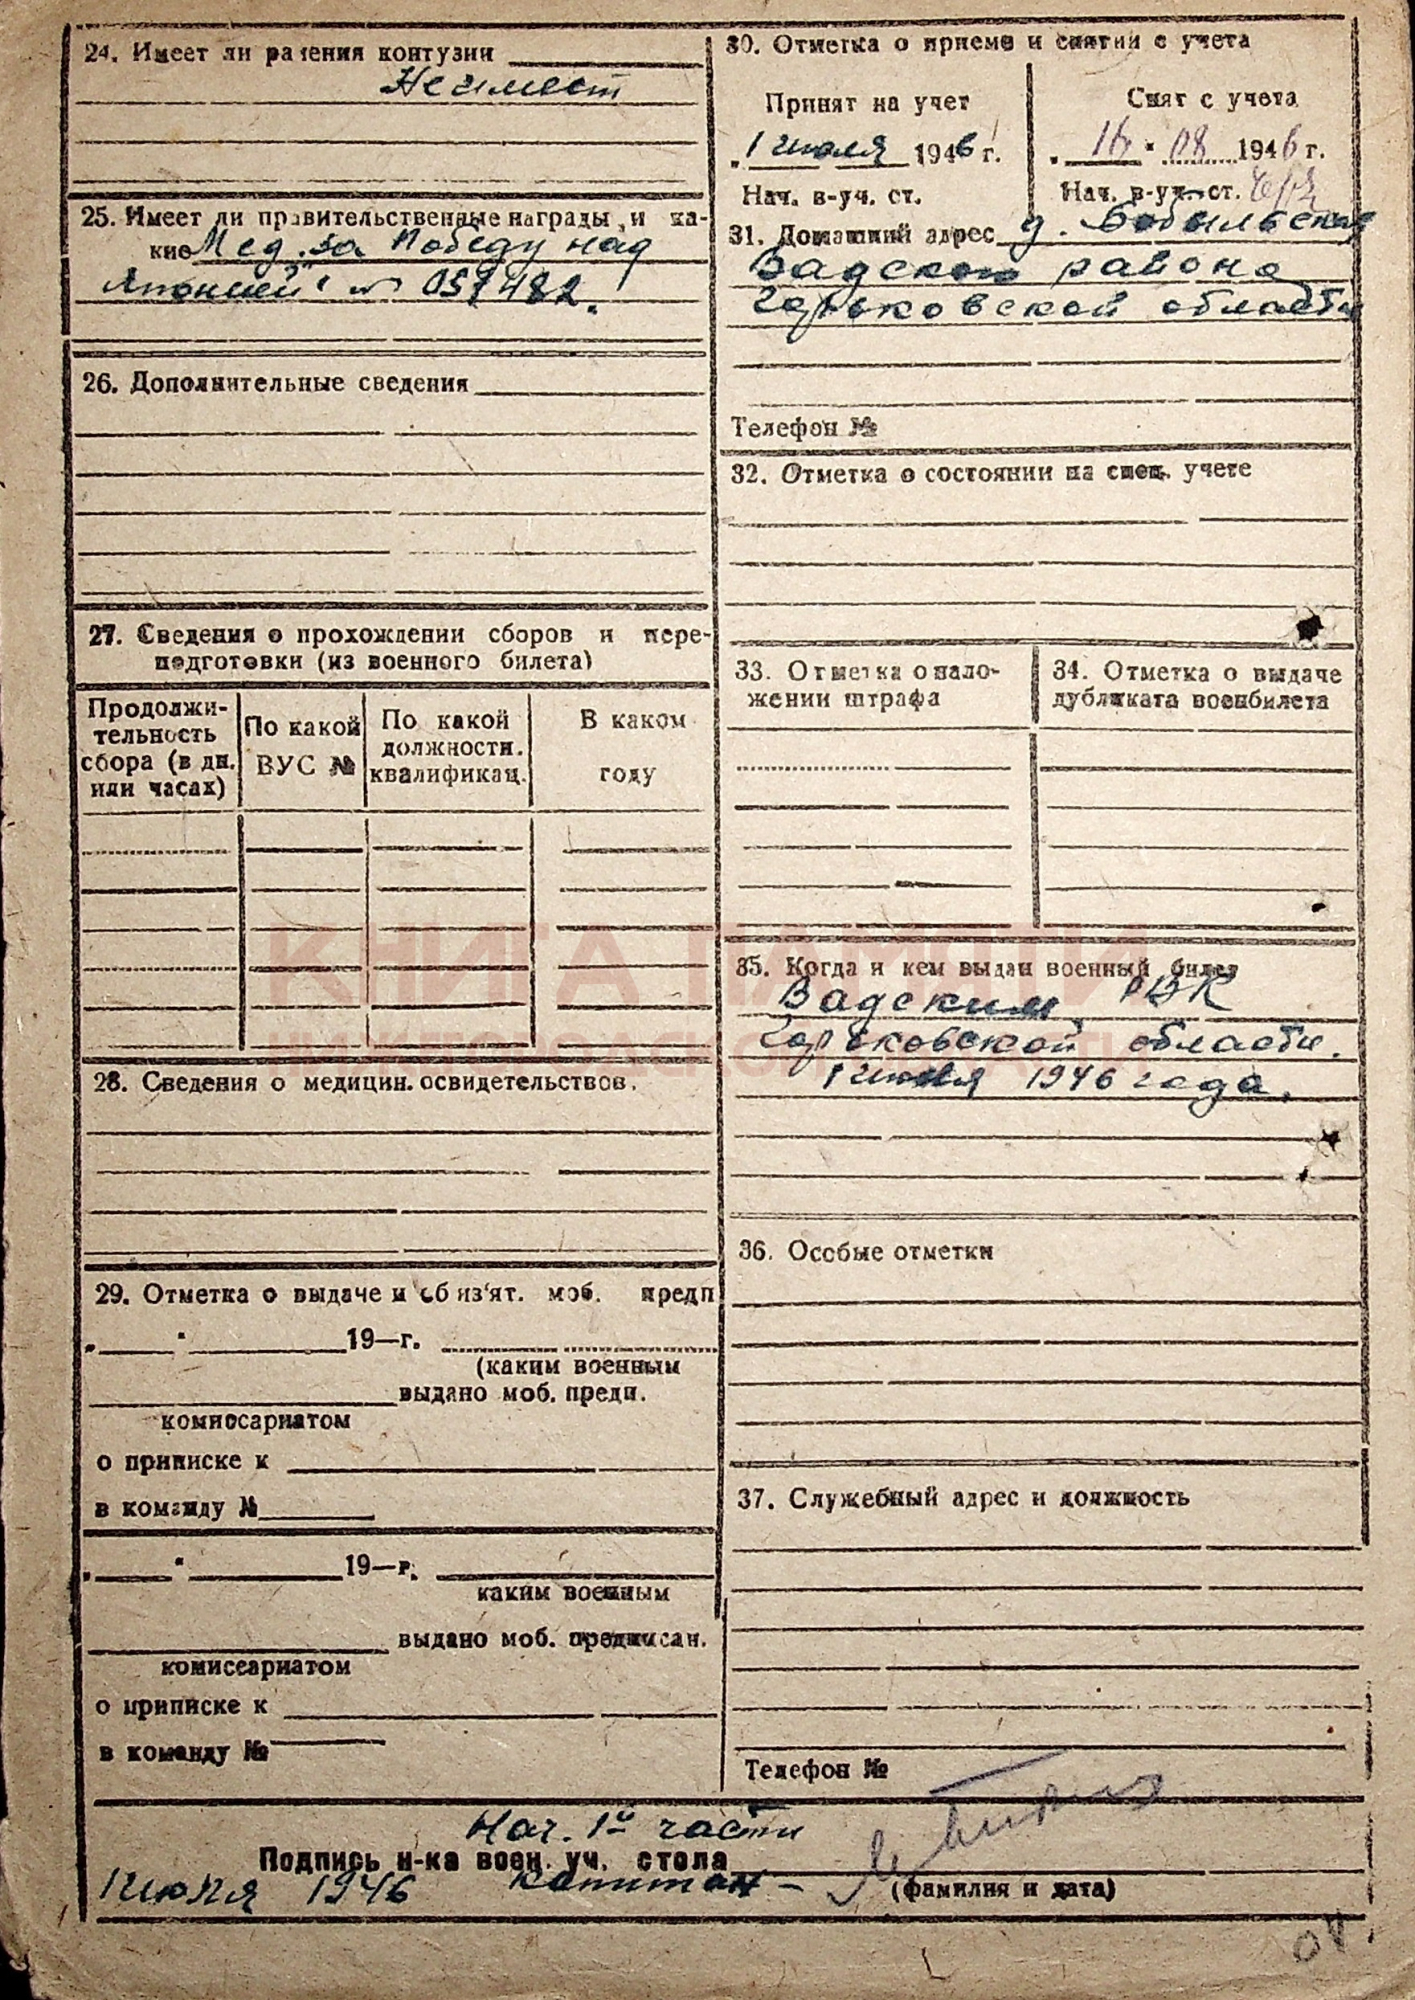 24. Имеет ли ранения контузии
Не имеет
25. Имеет ли правительственные награды и ка-
кие Мед. за Победу над
Японией" № 057482.
26. Дополнительные сведения
27. Сведения о прохождении сборов и пере-
подготовки (из военного билета)
Продолжи-
тельность
сбора (в дн.
или часах)
По какой
ВУС №
По какой
должности.
квалификац.
В каком
году
28. Сведения о медицин. освидетельствов.
29. Отметка о выдаче и об из'ят. моб. предп
„ " 19—г.
(каким военным
выдано моб. предп.
комиссариатом
о приписке к
в команду №
„ " 19—г.
каким военным
выдано моб. предписан.
комиссариатом
о приписке к
в команду №
30. Отметка о приеме и снятии с учета
Принят на учет
„1 июля 1946 г.
Нач. в-уч. ст.
Снят с учета
„ 16 " 08 1946 г.
Нач. в-уч. ст.
31. Домашний адрес д. Бобыльская
Вадского района
Горьковской области
Телефон №
32. Отметка о состоянии на спец. учете
33. Отметка о нало-
жении штрафа
34. Отметка о выдаче
дубликата военбилета
35. Когда и кем выдан военный билет
Вадским РВК
Горьковской области.
1 июля 1946 года.
36. Особые отметки
37. Служебный адрес и должность
Телефон №
Нач. 1й части
Подпись н-ка воен. уч. стола
1 июля 1946 капитан –
(фамилия и дата)
КНИГА ПАМЯТИ
НИЖЕГОРОДСКОЙ ОБЛАСТИ